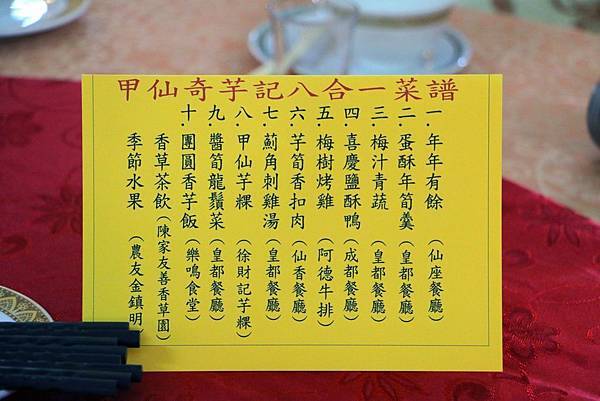 甲仙奇芋記八合一菜譜
一．年年有餘（仙座餐廳）
二．蛋酥年筍羹（皇都餐廳）
三．梅汁青蔬（皇都餐廳）
四．喜慶鹽酥鴨（成都餐廳）
五．梅樹烤雞（阿德牛排）
六．芋筍香扣肉（仙香餐廳）
七．薊角刺雞湯（皇都餐廳）
八．甲仙芋粿（徐財記芋粿）
九．醬筍龍鬚菜（皇都餐廳）
十．團圓香芋飯（樂鳴食堂）
香草茶飲（陳家友善香草園）
季節水果（農友金鎮明）